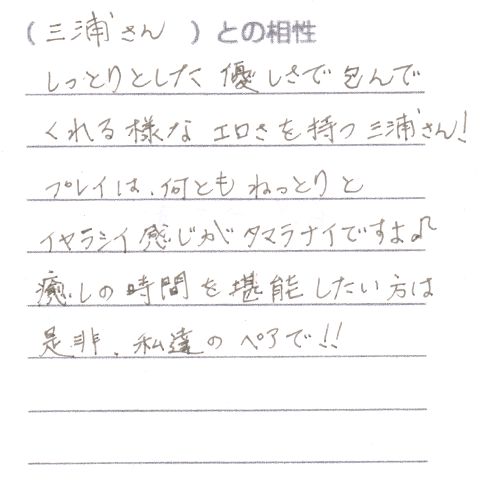 （三浦さん）との相性
しっとりとした優しさで包んで
くれる様なエロさを持つ三浦さん!
プレイは、何ともねっとりと
イヤラシイ感じがタマラナイですよ♫
癒しの時間を堪能したい方は
是非、私達のペアで!!